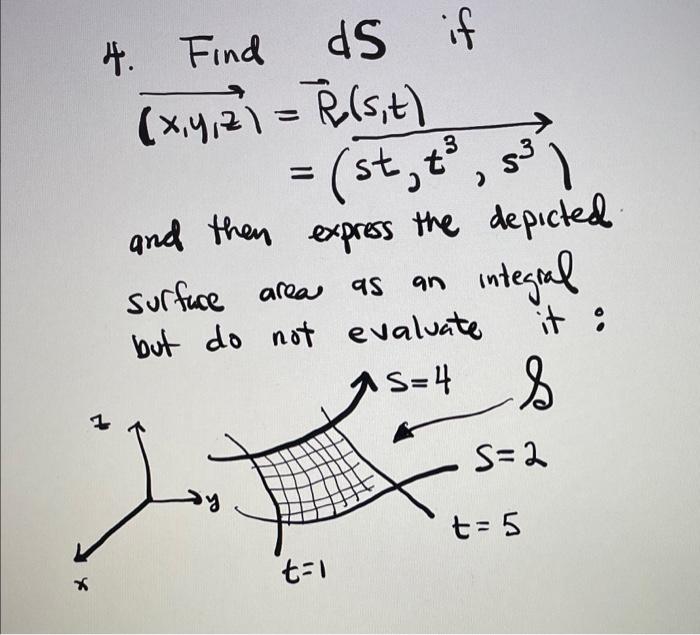 4. Find dS if
(x,y,z) = R(s,t)
= (st, t³, s³)
and then express the depicted
surface area as an integral
but do not evaluate it :
s=4 S
z
s=2
y
t=5
x
t=1